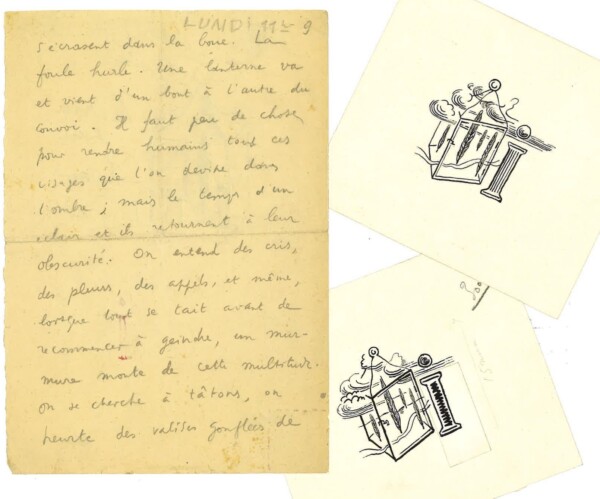 LUNDI 11 9
s'écrasent dans la boue. La
foule hurle. Une lanterne va
et vient d'un bout à l'autre du
convoi. Il faut peu de chose
pour rendre humains tous ces
visages que l'on devine dans
l'ombre ; mais le temps d'un
éclair et ils retournent à leur
obscurité. On entend des cris,
des pleurs, des appels, et même,
lorsque tout se tait avant de
recommencer à geindre, un mur-
mure monte de cette multitude.
On se cherche à tâtons, on
heurte des valises gonflées de